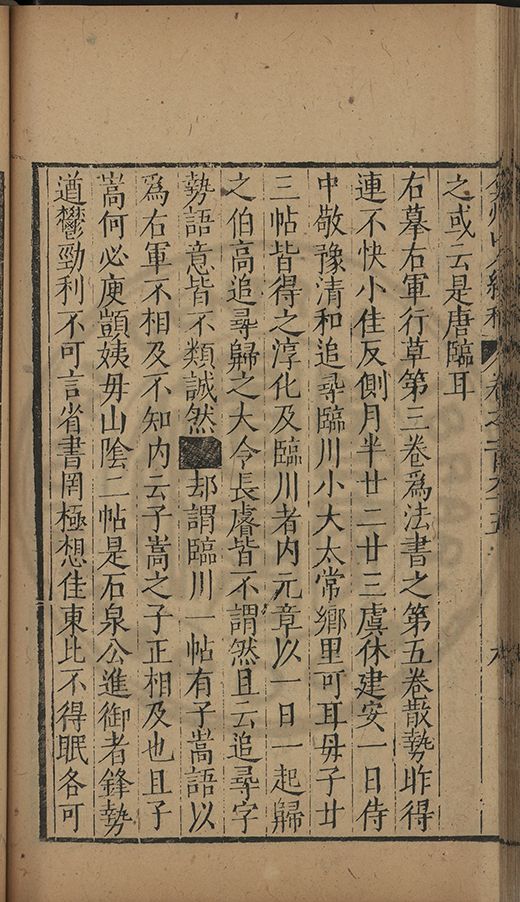 之或云是唐臨耳
右摹右軍行草第三卷為法書之第五卷散勢昨得
連不快小佳反側月半廿二廿三虞休建安一日侍
中敬豫清和追尋臨川小大太常鄉里可耳毋子廿
三帖皆得之淳化及臨川者内元章以一日一起歸
之伯高追尋歸之大令長睿皆不謂然且云追尋字
勢語意皆不類誠然 却謂臨川一帖有子嵩語以
為右軍不相及不知内云子嵩之子正相及也且子
嵩何必庾顗姨毋山陰二帖是石泉公進御者鋒勢
遒鬱勁利不可言省書罔極想佳東比不得眠各可